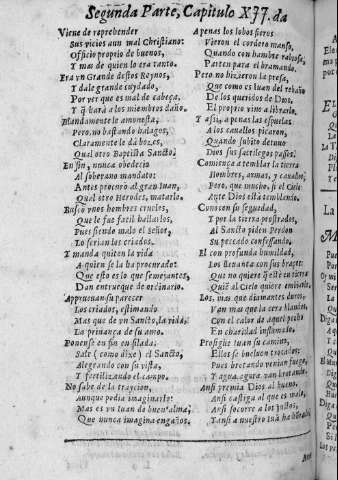 Segunda Parte, Capitulo XII. da
Viene de reprehender
Sus vicios aun mal Christiano:
Officio proprio de buenos,
Y mas de quien lo era tanto.
Era vn Grande destos Reynos,
Y dale grande cuydado,
Por ver que es mal de cabeça,
Y q̃ hará a los miembros daño.
Blandamente le amonesta,
Pero no bastando halagos,
Claramente le dà bozes,
Qual otro Baptista Sancto.
En fin, nunca obedecio
Al soberano mandato:
Antes procurò al gran Iuan,
Qual otro Herodes, matarlo.
Buscò vnos hombres crueles,
Que le fue facil hallarlos,
Pues siendo malo el señor,
Lo serian los criados.
Y manda quiten la vida
A quien se la ha procurado:
Que esto es lo que semejantes,
Dan en trueque de ordinario.
Apprueuan su parecer
Los criados, estimando
Mas que de vn Sancto, la vida,
La priuança de su amo.
Ponense en fin en silada:
Sale (como dixe) el Sancto,
Alegrando con su vista,
Y fertilizando el campo.
No sabe de la traycion,
Aunque podia imaginarlo:
Mas es vn Iuan de buen alma,
Que nunca imagina engaños.
Apenas los lobos fieros
Vieron el cordero manso,
Quando con hambre rabiosa,
Parten para el bramando.
Pero no hizieron la presa,
Que como es Iuan del rebaño
De los queridos de Dios,
El proprio vino a librarlo.
Y assi, a penas las espuelas
A los cauallos picaron,
Quando subito detuuo
Dios sus sacrilegos passos.
Comiença a temblar la tierra
Hombres, armas, y cauallos,
Pero, que mucho, si el Cielo
Ante Dios està temblando.
Conocen su seguedad,
Y por la tierra prostrados,
Al Sancto piden Perdon
Su peccado confessando.
El con profunda humildad,
Los leuanta con sus braços:
Que no quiere q̃ estè en tierra
Quiẽ al Cielo quiere embiarlo.
Los, mas que diamantes duros,
Van mas que la cera blandos,
Con el calor de aquel pecho
En charidad inflamado.
Prosigue Iuan su camin,
Ellos se bueluen trocados:
Pues brotando venian fuego,
Y agua, agora van brotando.
Ansi premia Dios al bueno,
Ansi castiga al que es malo,
Ansi socorre a los justos,